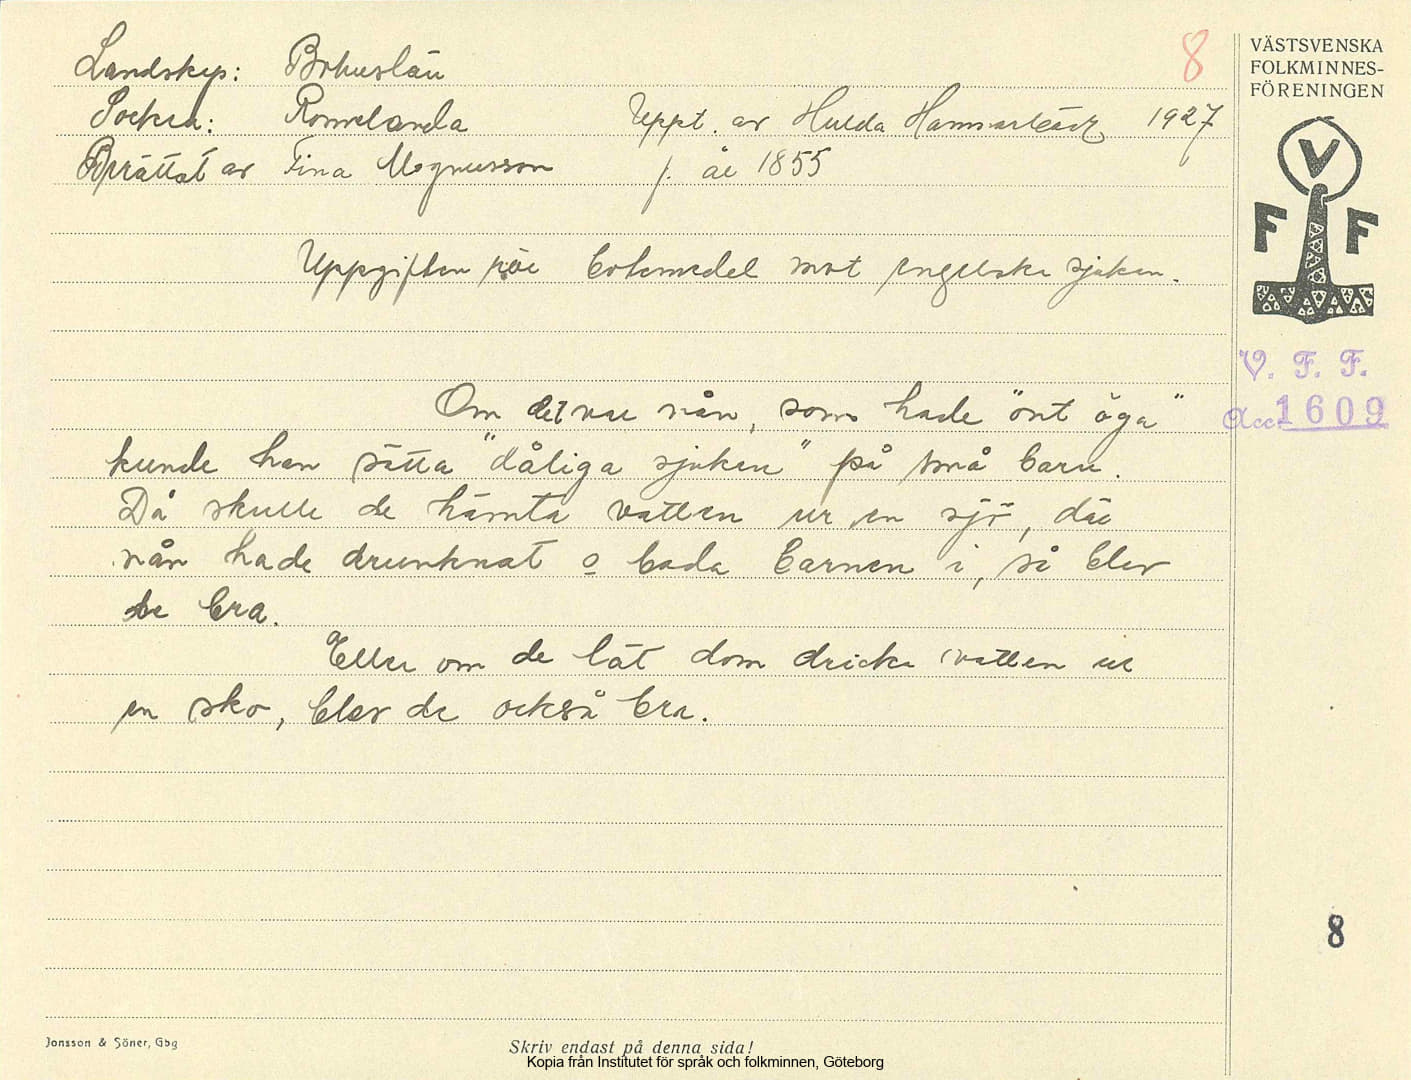 8
VÄSTSVENSKA
FOLKMINNES-
FÖRENINGEN
Landskap: Bohuslän
Socken: Romelanda Uppt. av Hulda 1927
Berättat av Tina Magnusson f. år 1855
V
F F
Uppgiften rör botemedel mot engelska sjukan.
V. F. F.
Acc. 1609
Om det var nån, som hade "ont öga"
kunde han sätta "dåliga sjukan" på små barn.
Då skulle de hämta vatten ur en sjö, där
nån hade drunknat o bada barnen i, så blev
de bra.
Eller om de lät dom dricka vatten ur
en sko, blev de också bra.
8
Jonsson & Söner, Gbg
Skriv endast på denna sida!
Kopia från Institutet för språk och folkminnen, Göteborg